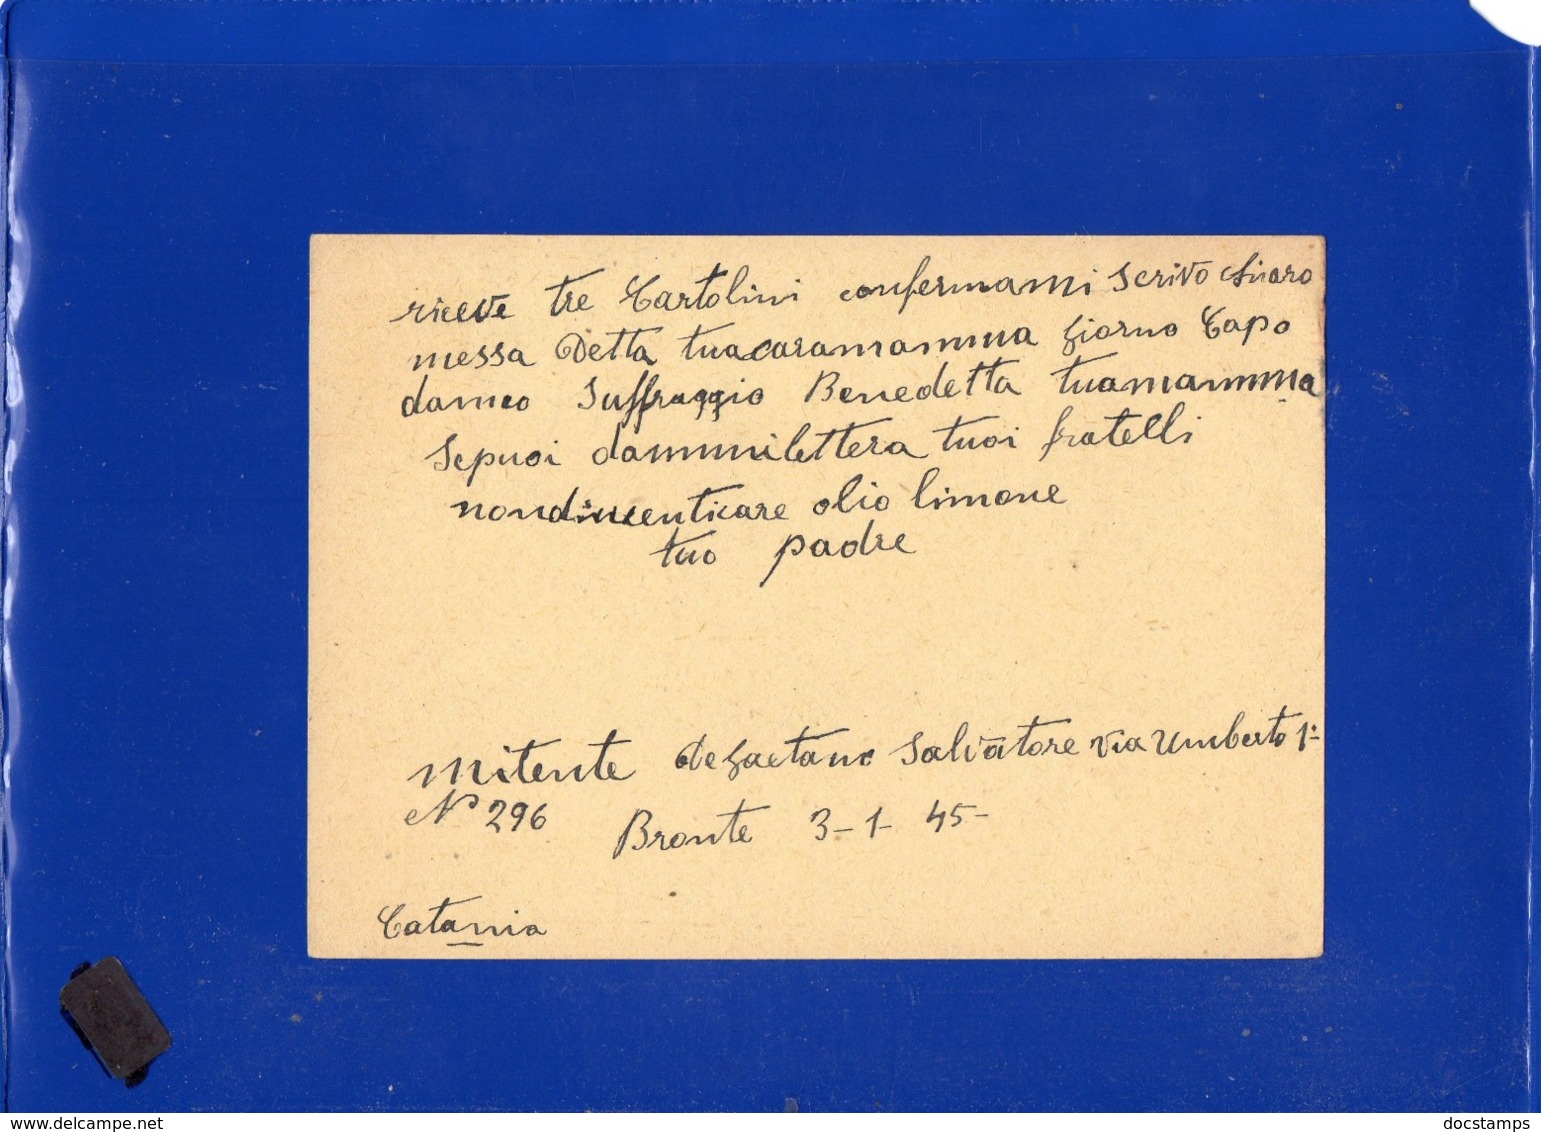 riceve tre Cartolini confermami scrivo chiaro
messa Detta tuacaramamma giorno Capo
danno Suffraggio Benedetta tuamamma
sepuoi dammilettera tuoi fratelli
nondimenticare olio limone
tuo padre
Mitente deGaetano Salvatore via Umberto 1º
Nº 296 Bronte 3-1-45-
Catania
www.delcampe.net
docstamps